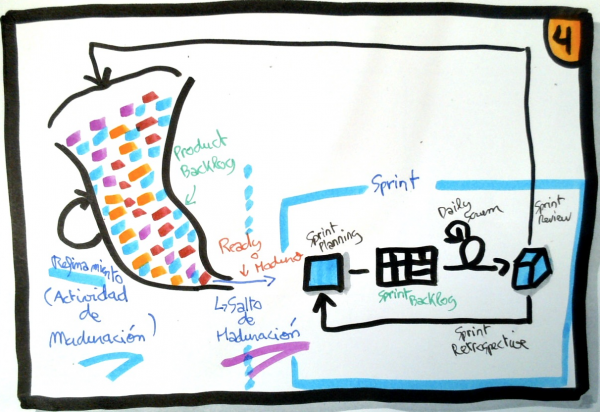 4
Product
Backlog
Sprint
Sprint
Planning
Daily
Scrum
Sprint
Review
Ready
o Maduro
Refinamiento
(Actividad
de
Maduración)
↳ Salto
de
Maduración
Sprint
Backlog
Sprint
Retrospective